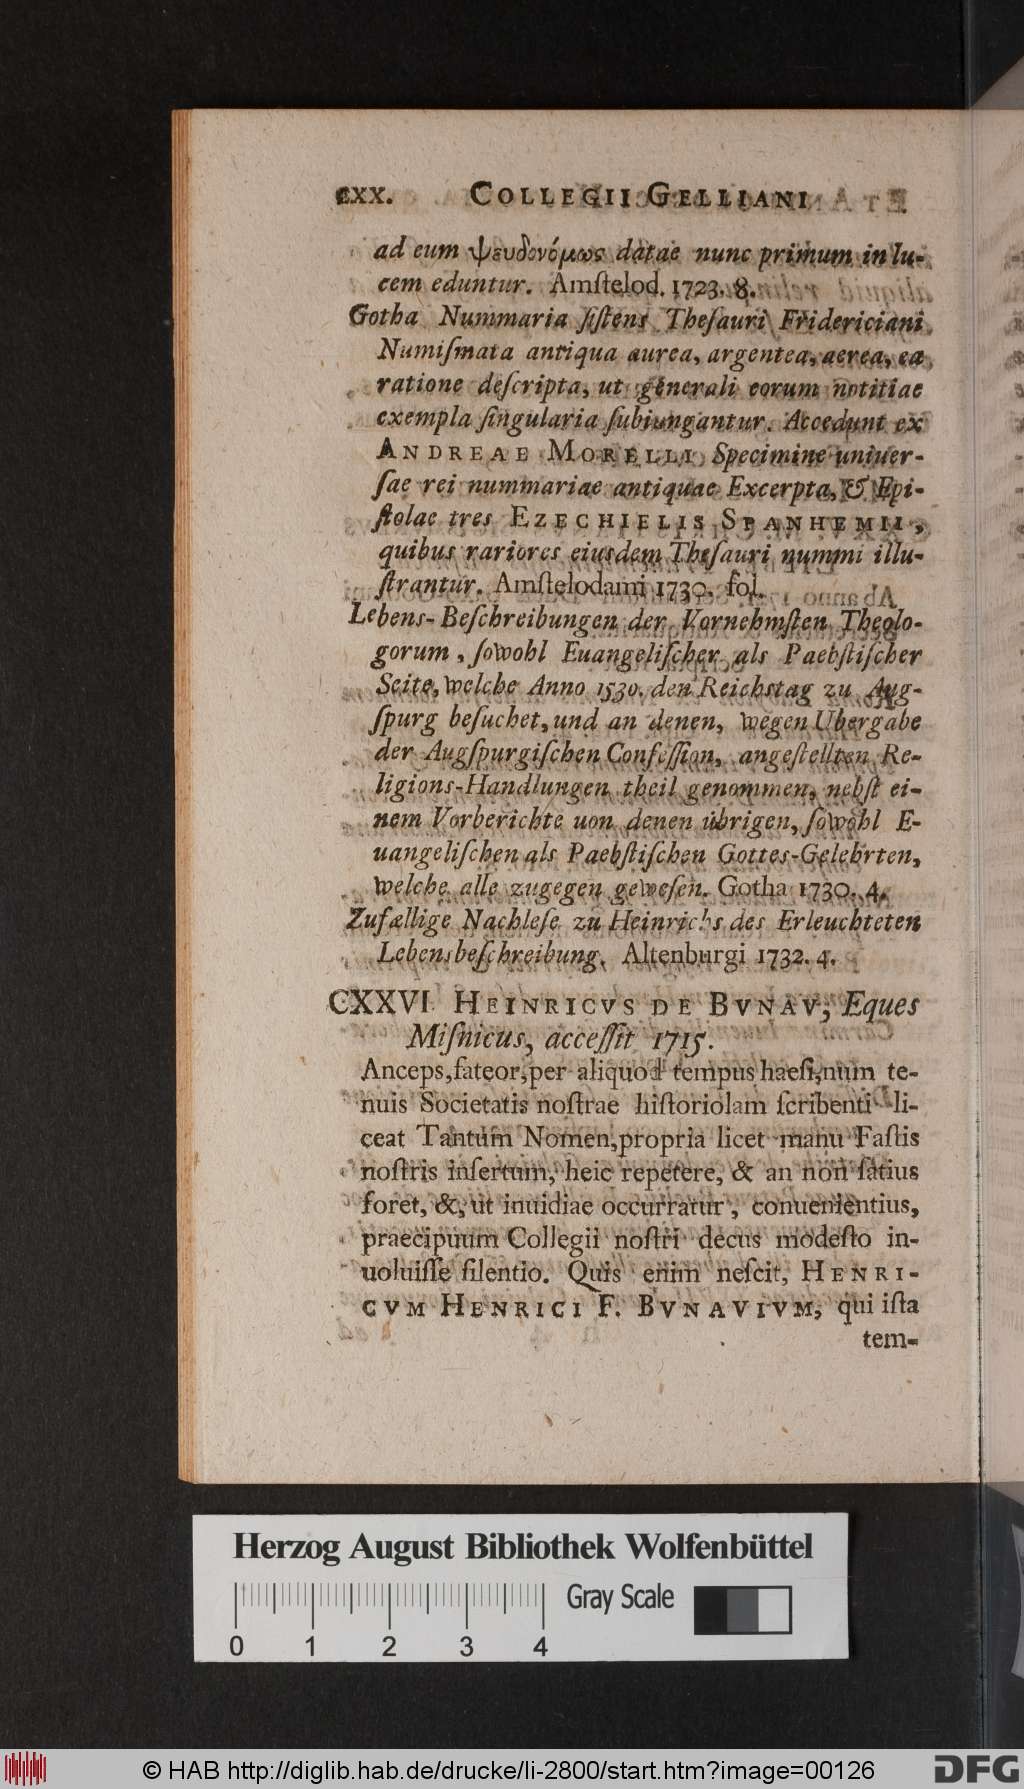 CXX. COLLEGII GELLIANI
ad eum ψευδονόμως datae nunc primum in lu-
cem eduntur. Amſtelod. 1723. 8.
Gotha Nummaria ſiſtens Theſauri Fridericiani
Numiſmata antiqua aurea, argentea, aerea, ea
ratione deſcripta, ut generali eorum notitiae
exempla ſingularia ſubiungantur. Accedunt ex
ANDREAE MORELLI Specimine uniuer-
ſae rei nummariae antiquae Excerpta, & Epi-
ſtolae tres EZECHIELIS SPANHEMII,
quibus rariores eiusdem Theſauri nummi illu-
ſtrantur. Amſtelodami 1730. fol.
Lebens-Beſchreibungen der Vornehmſten Theolo-
gorum, ſowohl Euangeliſcher als Paebſtiſcher
Seite, welche Anno 1530. den Reichstag zu Aug-
ſpurg beſuchet, und an denen, wegen Ubergabe
der Augſpurgiſchen Confeſſion, angeſtellten Re-
ligions-Handlungen theil genommen, nebſt ei-
nem Vorberichte uon denen übrigen, ſowohl E-
uangeliſchen als Paebſtiſchen Gottes-Gelehrten,
welche alle zugegen geweſen. Gotha 1730. 4.
Zufællige Nachleſe zu Heinrichs des Erleuchteten
Lebensbeſchreibung. Altenburgi 1732. 4.
CXXVI. HEINRICVS DE BVNAV, Eques
Miſnicus, acceſſit 1715.
Anceps, fateor, per aliquod tempus haeſi, num te-
nuis Societatis noſtrae hiſtoriolam ſcribenti li-
ceat Tantum Nomen, propria licet manu Faſtis
noſtris inſertum, heic repetere, & an non ſatius
foret, &, ut inuidiae occurratur, conuenientius,
praecipuum Collegii noſtri decus modeſto in-
uoluiſſe ſilentio. Quis enim neſcit, HENRI-
CVM HENRICI F. BVNAVIVM, qui iſta
tem-
Herzog August Bibliothek Wolfenbüttel
Gray Scale
0 1 2 3 4
© HAB http://diglib.hab.de/drucke/li-2800/start.htm?image=00126
DFG